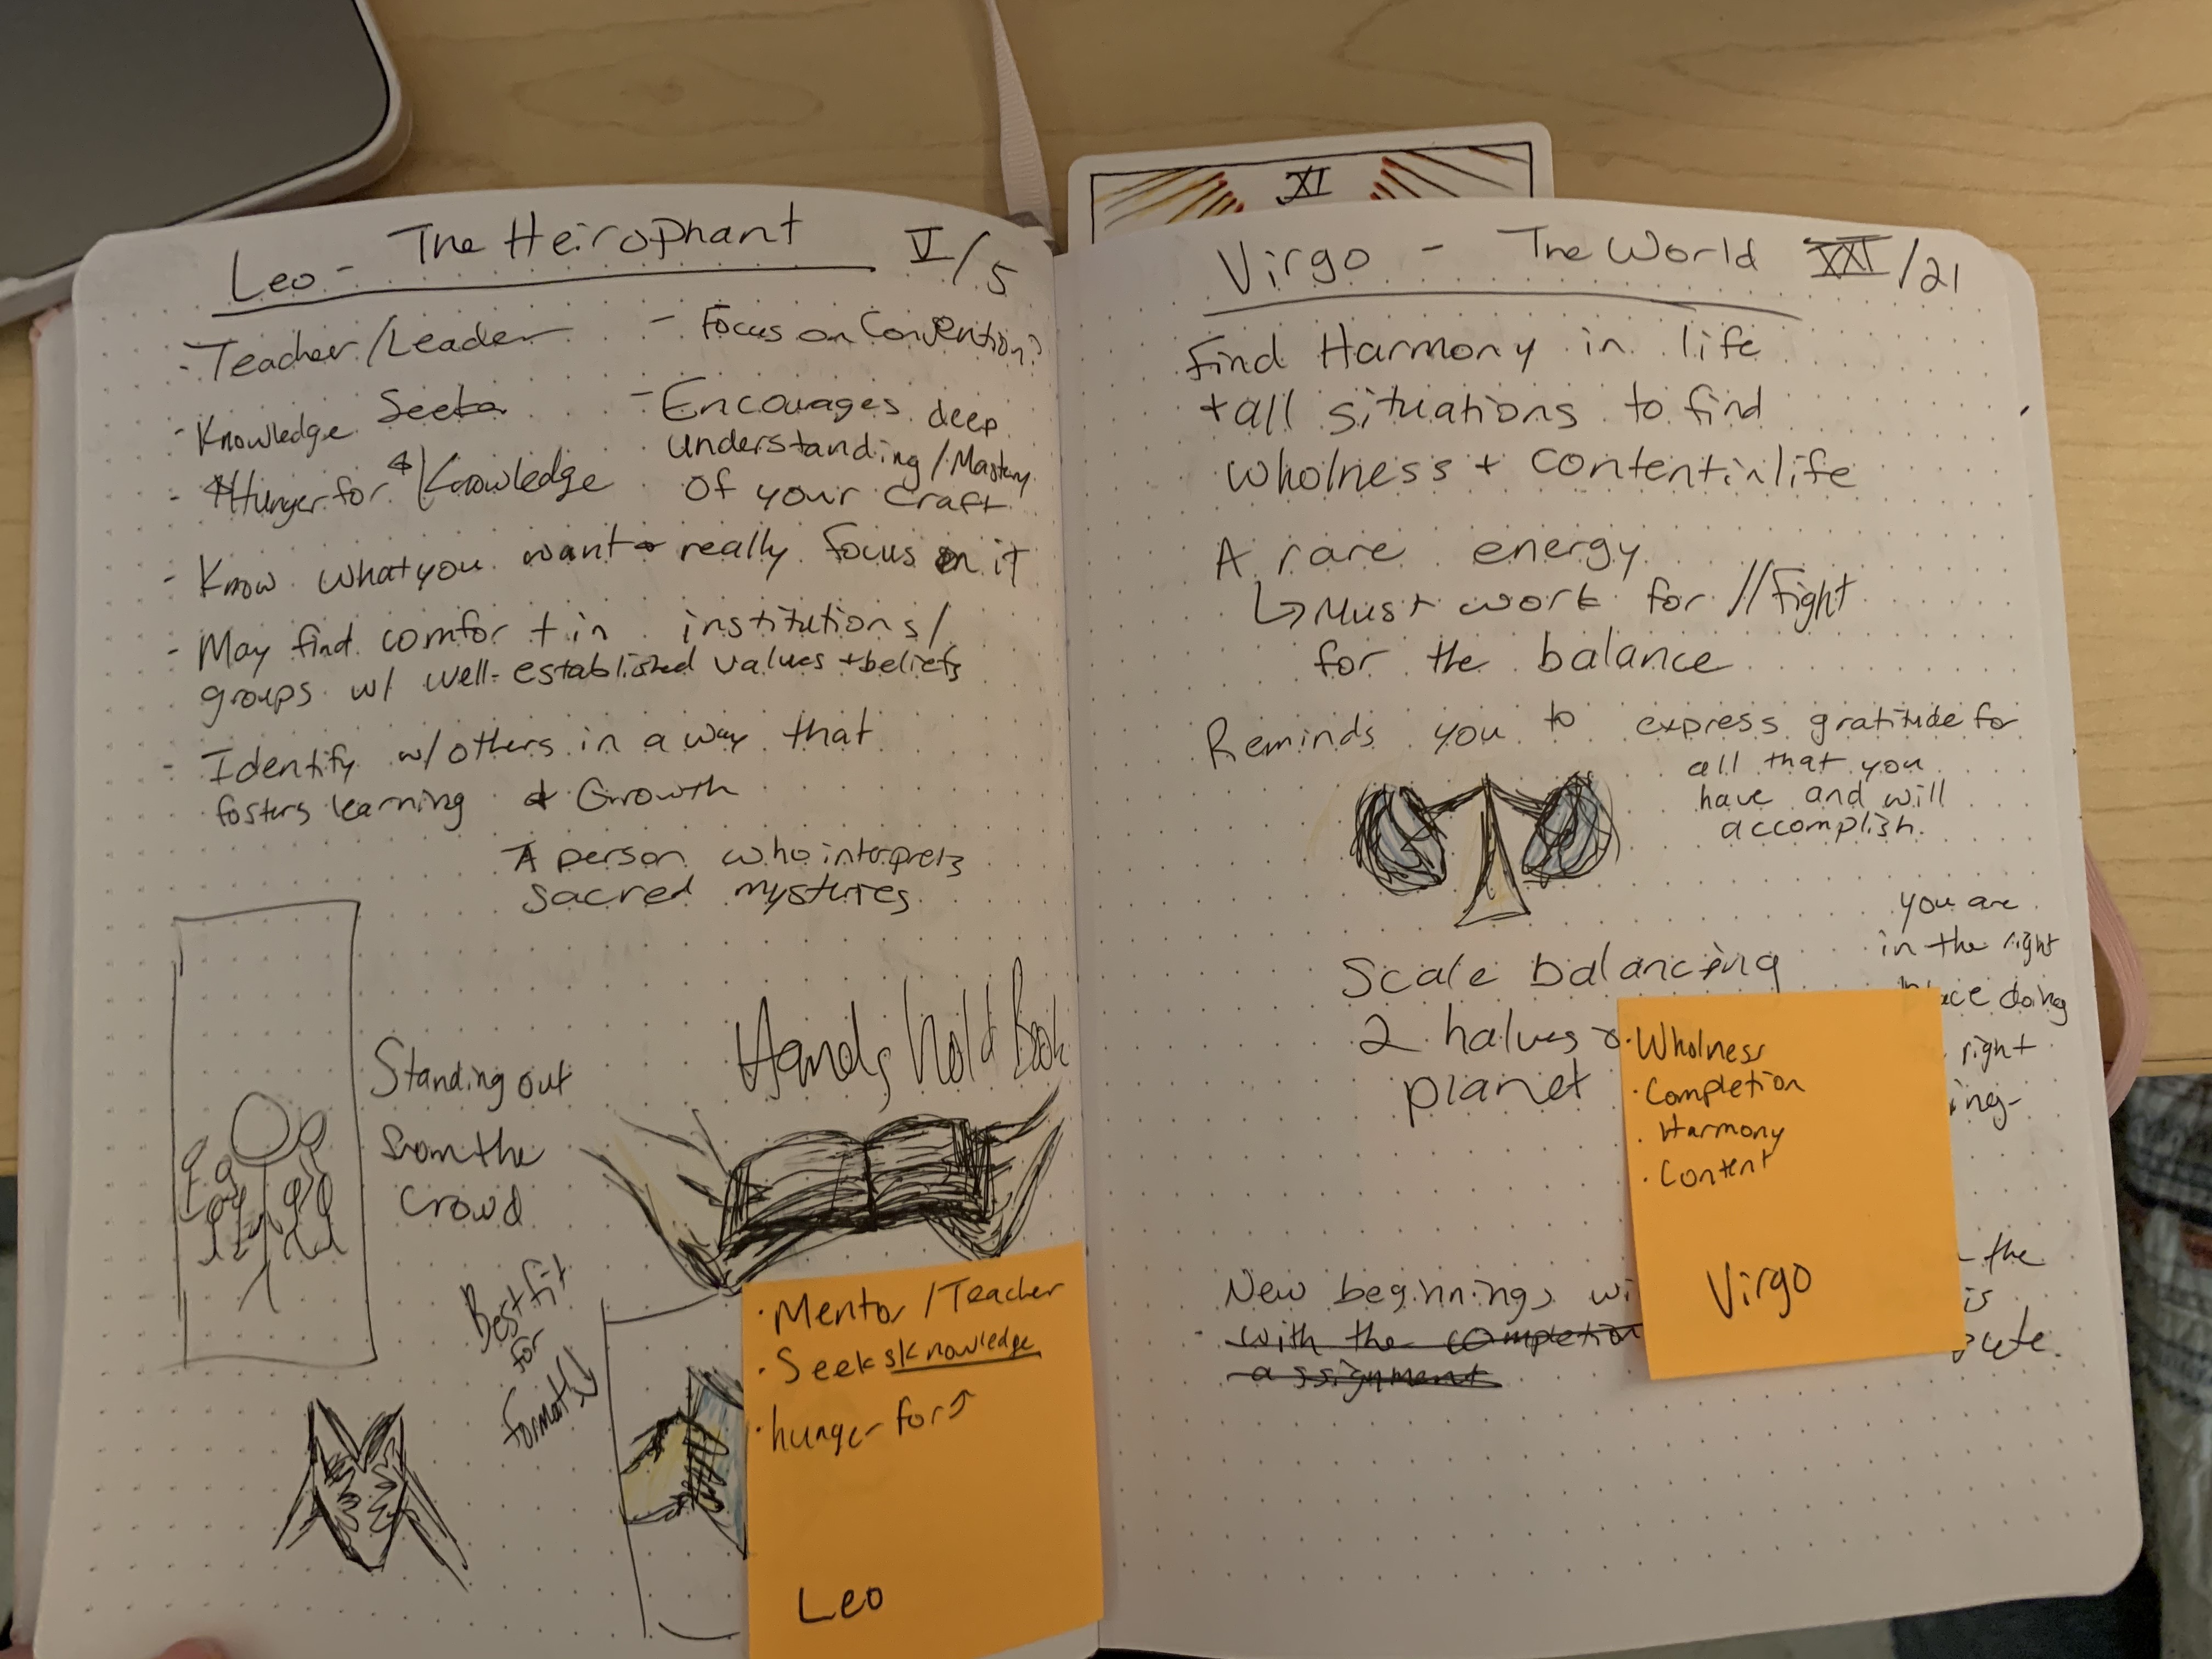 XI
Leo - The Heirophant V/5
- Teacher/Leader
- Knowledge Seeker
- Hunger for Knowledge
- Know what you want + really focus on it
- May find comfort in institutions/
groups w/ well-established values + beliefs
- Identify w/ others in a way that
fosters learning & Growth
- Focus on Convention?
- Encourages deep
understanding/Mastery
of your craft
A person who interprets
sacred mysteries
Standing out
from the
crowd
Hands hold Book
Best fit
for
format
• Mentor/Teacher
• Seeks knowledge
• hunger for
Leo
Virgo - The World XXI/21
Find Harmony in life
+ all situations to find
wholness + content in life
A rare energy
↳ Must work for // Fight
for the balance
Reminds you to express gratitude for
all that you
have and will
accomplish.
Scale balancing
2 halves
planet
you are
in the right
doing
right
• Wholness
• Completion
• Harmony
• Content
Virgo
New beginnings
with the completion
a assignment
the
is